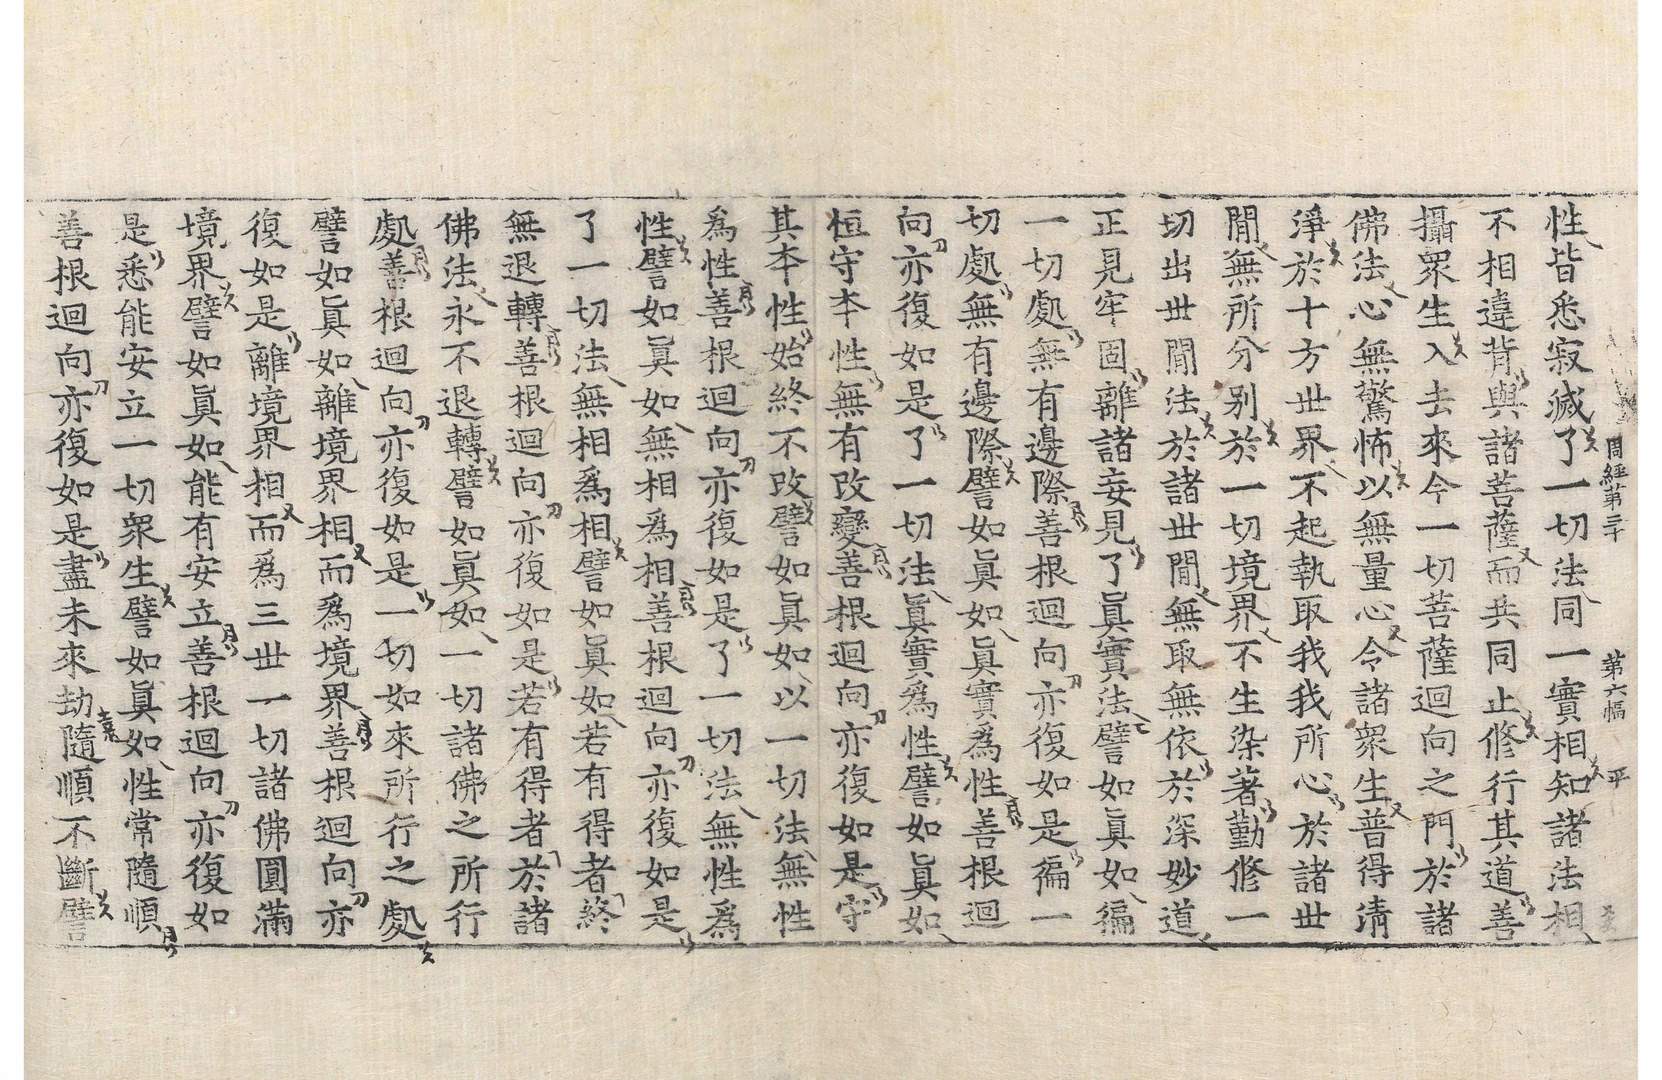 周經第三十 第六幅 平
性皆悉寂滅了一切法同一實相知諸法相
不相違背與諸菩薩而共同止修行其道善
攝眾生入去來今一切菩薩迴向之門於諸
佛法心無驚怖以無量心令諸眾生普得清
淨於十方世界不起執取我我所心於諸世
間無所分別於一切境界不生染著勤修一
切出世間法於諸世間無取無依於深妙道
正見牢固離諸妄見了眞實法譬如眞如徧
一切處無有邊際善根迴向亦復如是徧一
切處無有邊際譬如眞如眞實爲性善根迴
向亦復如是了一切法眞實爲性譬如眞如
恒守本性無有改變善根迴向亦復如是守
其本性始終不改譬如眞如以一切法無性
爲性善根迴向亦復如是了一切法無性爲
性譬如眞如無相爲相善根迴向亦復如是
了一切法無相爲相譬如眞如若有得者終
無退轉善根迴向亦復如是若有得者於諸
佛法永不退轉譬如眞如一切諸佛之所行
處善根迴向亦復如是一切如來所行之處
譬如眞如離境界相而爲境界善根迴向亦
復如是離境界相而爲三世一切諸佛圓滿
境界譬如眞如能有安立善根迴向亦復如
是悉能安立一切眾生譬如眞如性常隨順
善根迴向亦復如是盡未來劫隨順不斷譬